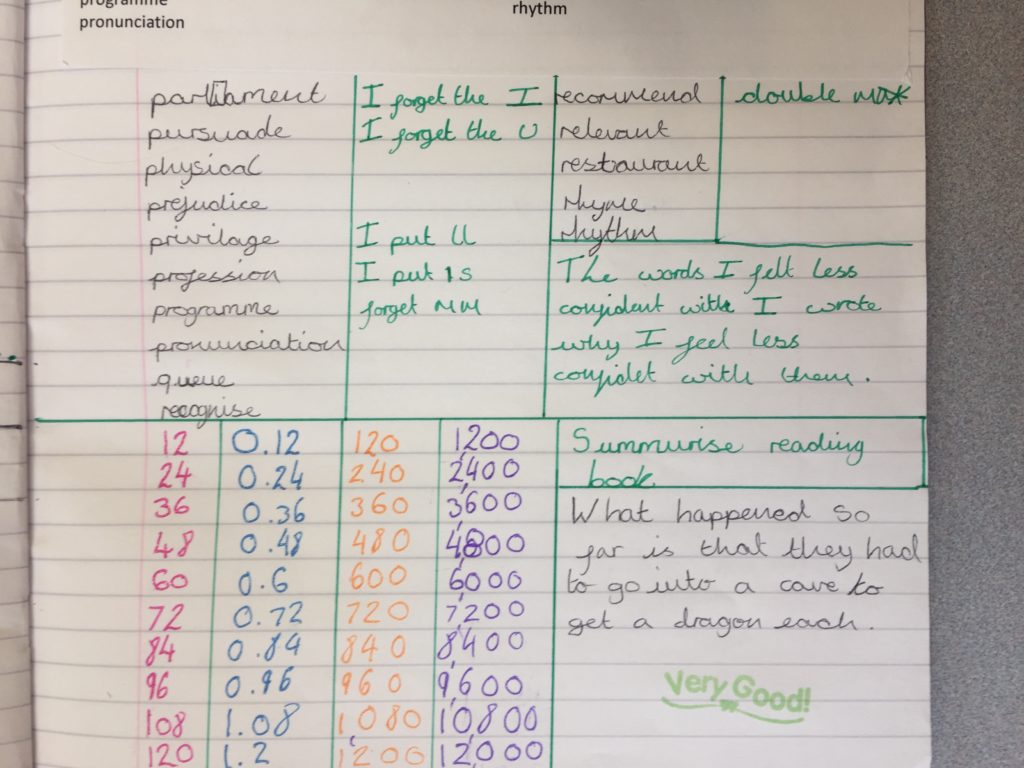 programme
pronunciation
rhythm
parliament
pursuade
physical
prejudice
privilage
profession
programme
pronunciation
queue
recognise
I forget the I
I forget the U
I put ll
I put 1s
forget MM
recommend
relevant
restaurant
rhyme
rhythm
double
The words I felt less
confident with I wrote
why I feel less
confidet with them.
12 0.12 120 1,200
24 0.24 240 2,400
36 0.36 360 3,600
48 0.48 480 4,800
60 0.6 600 6,000
72 0.72 720 7,200
84 0.84 840 8,400
96 0.96 960 9,600
108 1.08 1,080 10,800
120 1.2 1,200 12,000
Summurise reading
book
What happened so
far is that they had
to go into a cave to
get a dragon each.
Very Good!